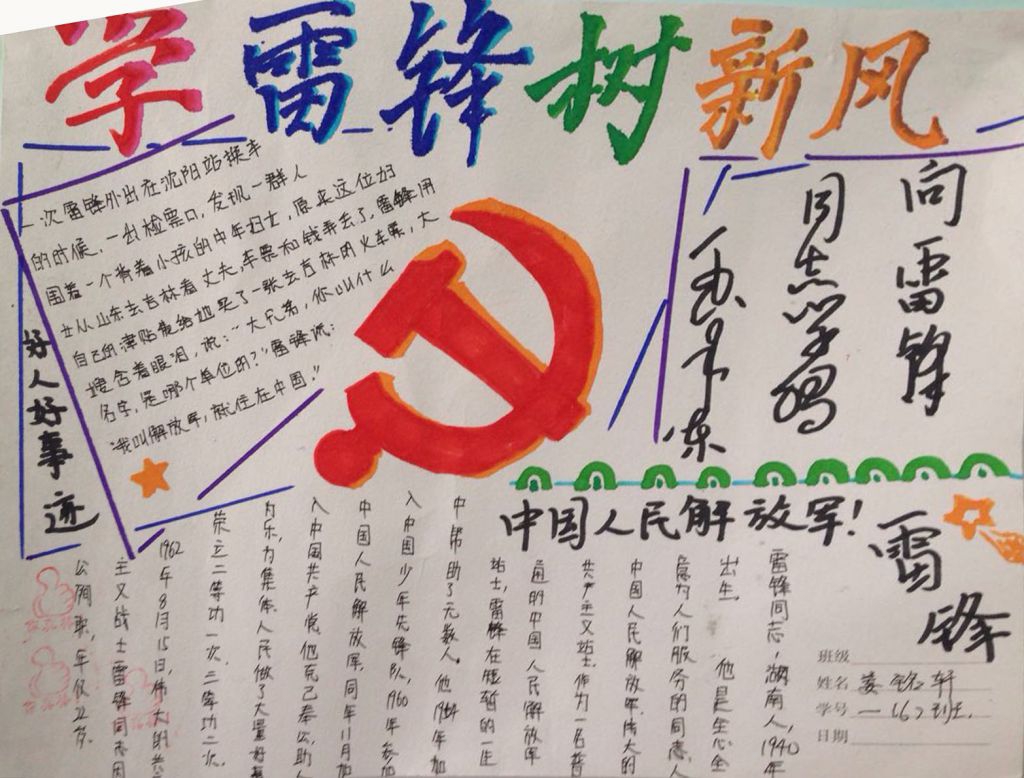 学雷锋树新风
一次雷锋外出在沈阳站换车
的时候，一出检票口，发现一群人
围着一个背着小孩的中年妇女，原来这位妇
女从山东去吉林看丈夫，车票和钱弄丢了，雷锋用
自己的津贴费给她买了一张去吉林的火车票，大
嫂含着眼泪，说：“大兄弟，你叫什么
名字，是哪个单位的？”雷锋说：
“我叫解放军，就住在中国。”
好人好事迹
向雷锋
同志学习
毛泽东
中国人民解放军！
雷锋
雷锋同志，湖南人，1940年
出生，他是全心全
意为人们服务的同志，人
中国人民解放军伟大的
共产主义战士，作为一名普
通的中国人民解放军
战士，雷锋在短暂的一生
中帮助了无数人。他1954年加
入中国少年先锋队，1960年参加
中国人民解放军，同年11月加
入中国共产党他克己奉公，助人
为乐，为集体人民做了大量好事
荣立二等功一次，三等功二次，
1962年8月15日，伟大的共
主义战士雷锋同志因
公殉职，年仅22岁。
班级
姓名 娄铭轩
学号 一(6)班
日期